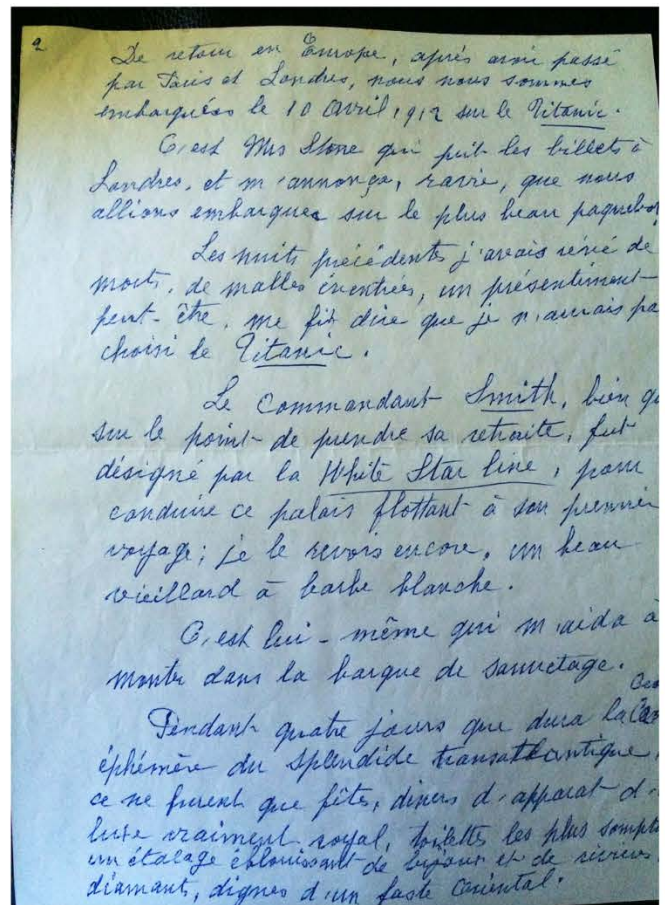 2
De retour en Europe, après avoir passé
par Paris et Londres, nous nous sommes
embarquées le 10 avril 1912 sur le Titanic.
C'est Mrs Stone qui prit les billets à
Londres, et m'annonça, ravie, que nous
allions embarquer sur le plus beau paquebot
Les nuits précédentes j'avais rêvé de
morts, de malles éventrées, un présentiment
peut-être, me fit dire que je n'aurais pa
choisi le Titanic.
Le Commandant Smith, bien qu
sur le point de prendre sa retraite, fut
désigné par la White Star line, pour
conduire ce palais flottant à son premier
voyage; je le revois encore, un beau
vieillard à barbe blanche.
C'est lui-même qui m'aida à
monter dans la barque de sauvetage.
Pendant quatre jours que dura la
éphémère du splendide transatlantique,
ce ne furent que fête, diners d'apparat d'
luxe vraiment royal, toilettes les plus somptu
un étalage éblouissant de bijoux et de rivières
diamants, dignes d'un faste oriental.